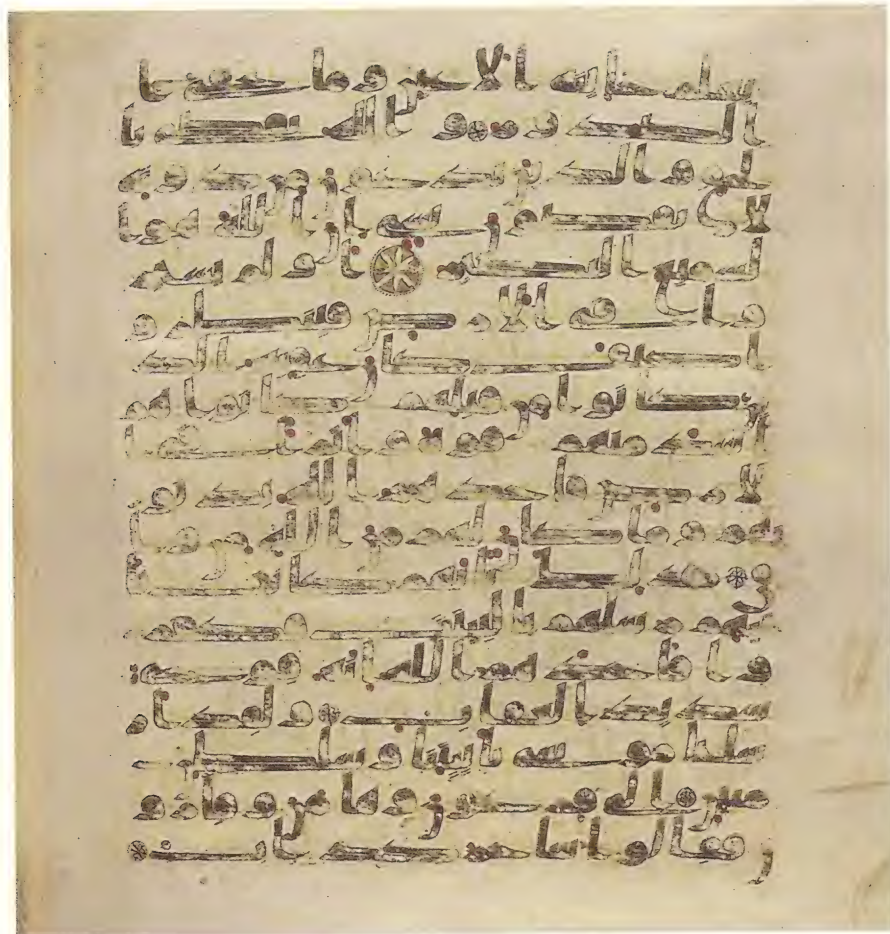 يعلم خاينة الاعين وما تخفي ا
لصدور والله يقضي با
لحق والذين يدعون من دونه
لا يقضون بشي ان الله هو ا
لسميع البصير اولم يسير
وا في الارض فينظروا
كيف كان عقبة الذ
ين كانوا من قبلهم كانوا هم
اشد منهم قوة واثارا في ا
لارض فاخذهم الله بذنو
بهم وما كان لهم من الله من وا
ق ذلك بانهم كانت تا
تيهم رسلهم بالبينت فكفروا
فاخذهم الله انه قوي
شديد العقاب ولقد ار
سلنا موسى بايتنا وسلطن
مبين الى فرعون وهامن وقرو
ن فقالوا سحر كذاب